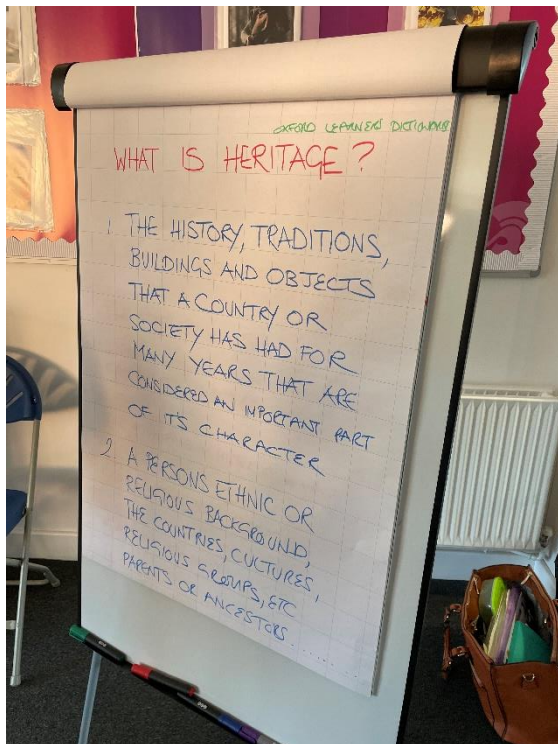 OXFORD LEARNERS DICTIONARY
WHAT IS HERITAGE?
1. THE HISTORY, TRADITIONS,
BUILDINGS AND OBJECTS
THAT A COUNTRY OR
SOCIETY HAS HAD FOR
MANY YEARS THAT ARE
CONSIDERED AN IMPORTANT PART
OF ITS CHARACTER
2. A PERSONS ETHNIC OR
RELIGIOUS BACKGROUND,
THE COUNTRIES, CULTURES,
RELIGIOUS GROUPS, ETC
PARENTS OR ANCESTORS......